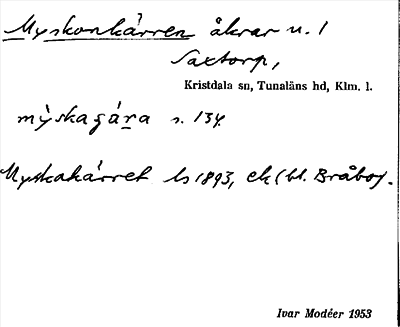 Myskonkärren åkrar u. 1
Saxtorp,
Kristdala sn, Tunaläns hd, Klm. l.
mỳskaɡára s. 134.
Myskakärret ls 1893, ek (bl. Bråbo).
Ivar Modéer 1953